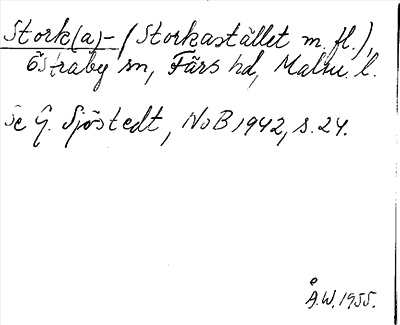 Stork(a)- (Storkastället m. fl.),
Östraby sn, Färs hd, Malm. l.
Se G. Sjöstedt, NoB 1942, s. 24.
Å.W. 1955.